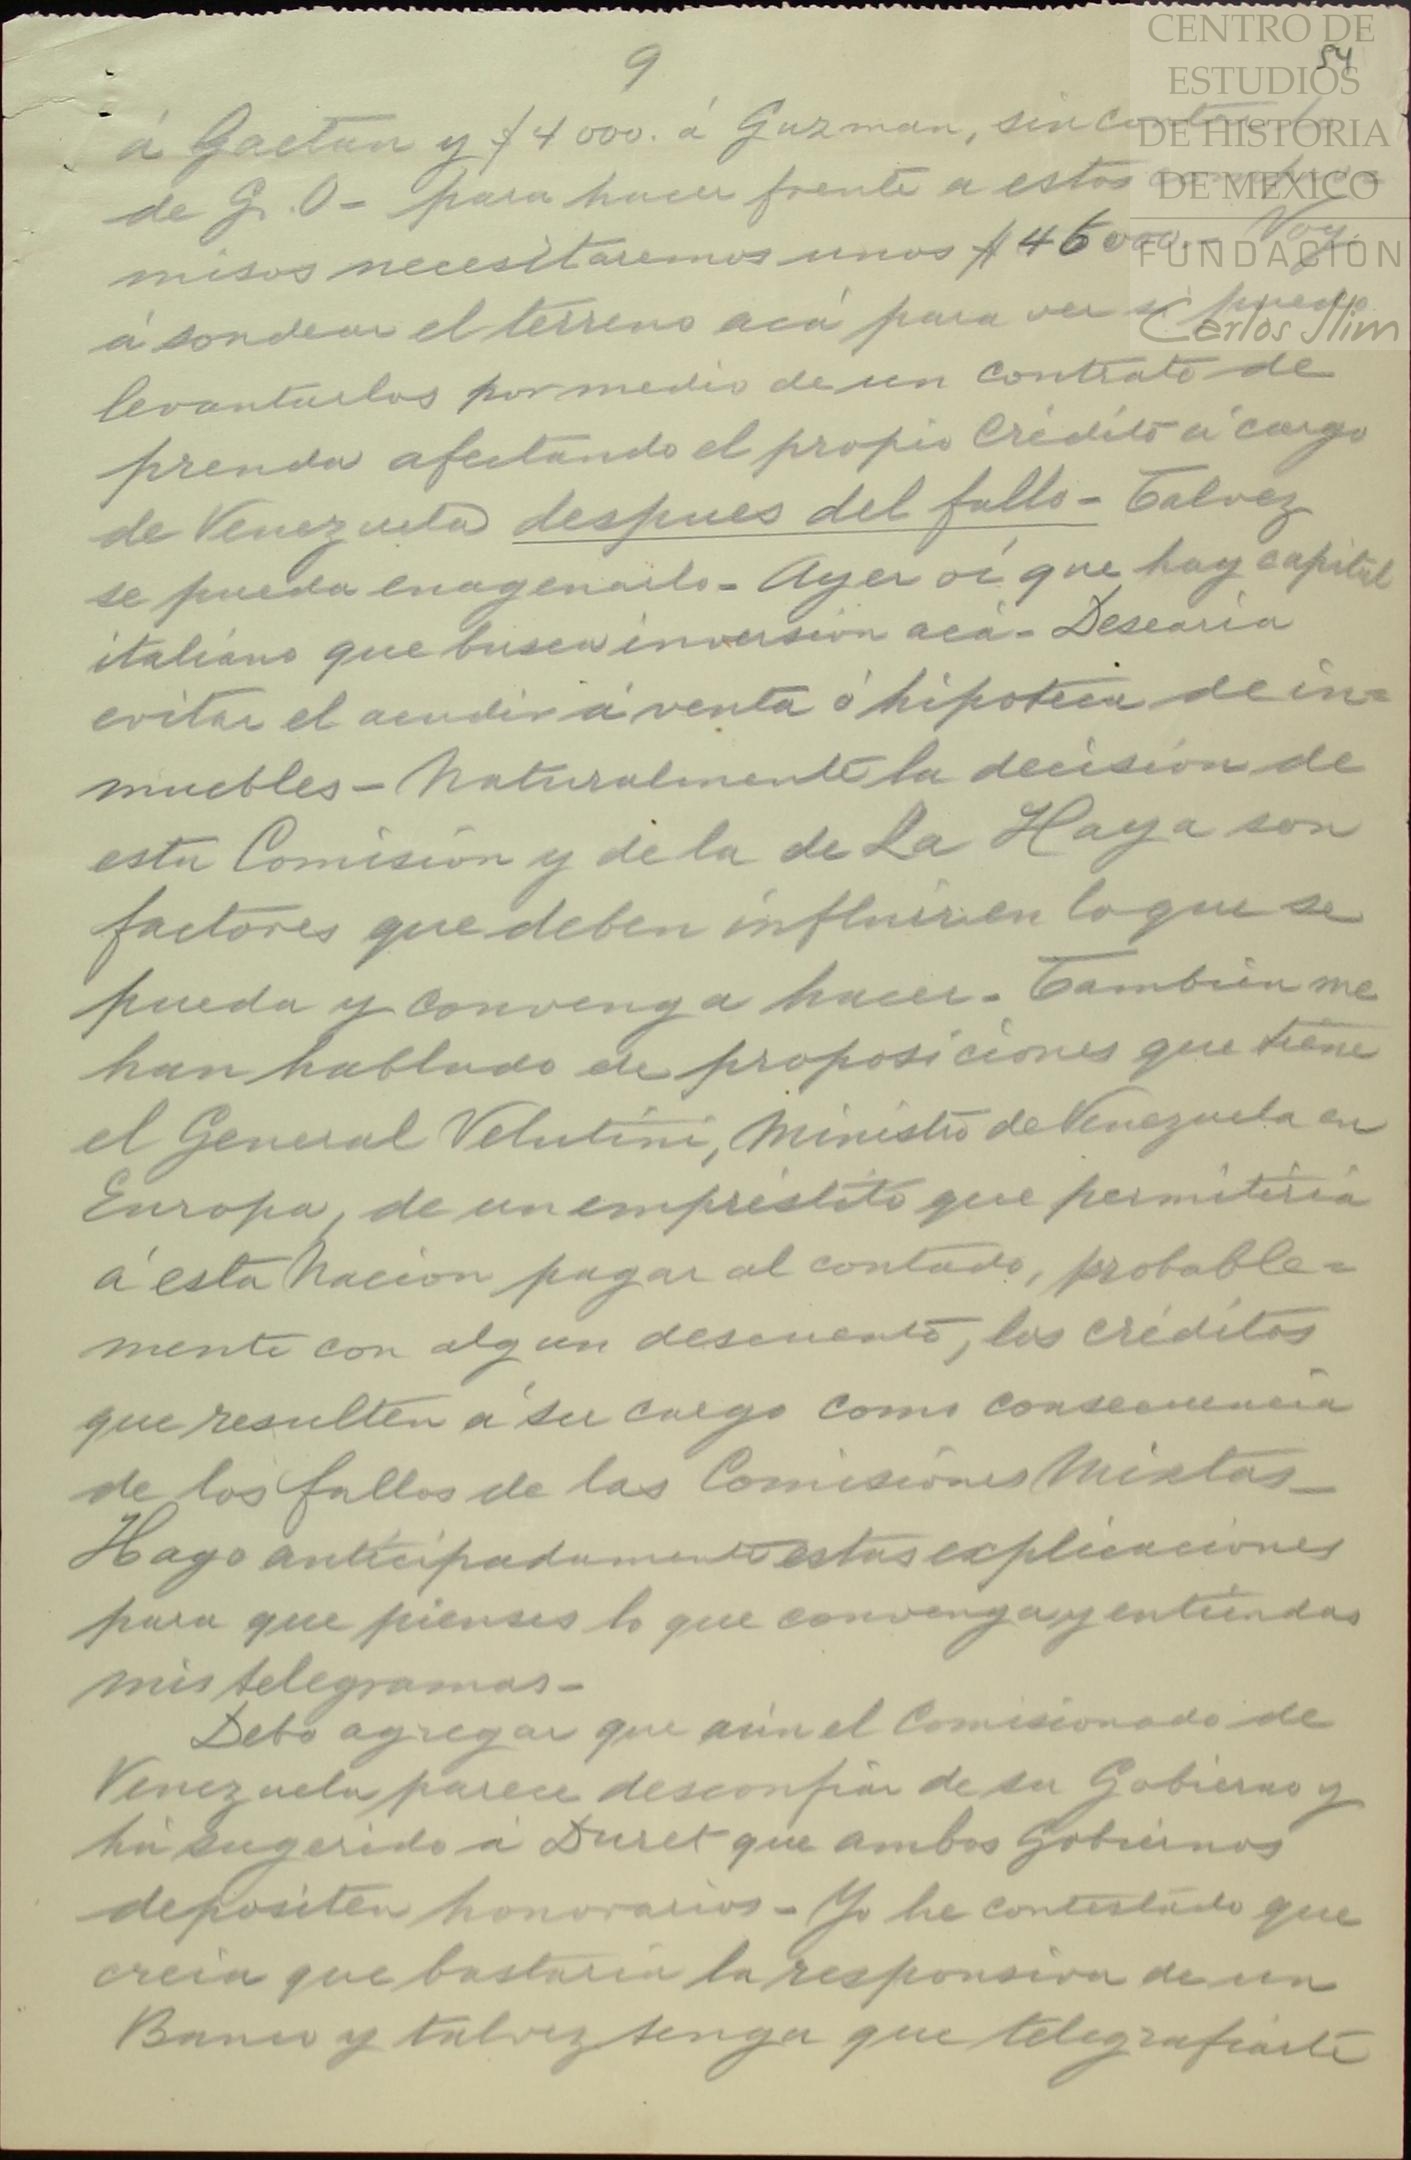 9
54
CENTRO DE
ESTUDIOS
DE HISTORIA
DE MEXICO
FUNDACIÓN
Carlos Slim
á Gaetan y $4000. á Guzman, sin contar lo
de G. O– para hacer frente a estos compro
misos necesitaremos unos $45000.– Voy
á sondear el terreno acá para ver si puedo
levantarlos por medio de un contrato de
prenda afectando el propio Crédito á cargo
de Venezuela despues del fallo– Talvez
se pueda enagenarlo– Ayer oí que hay capital
italiano que busca inversión acá– Desearia
evitar el acudir á venta ó hipoteca de in=
muebles– Naturalmente la decisión de
esta Comisión y de la de La Haya son
factores que deben influir en lo que se
pueda y convenga hacer– Tambien me
han hablado de proposiciones que tiene
el General Velutini, Ministro de Venezuela en
Europa, de un empréstito que permitiria
á esta Nacion pagar al contado, probable=
mente con algun descuento, los créditos
que resulten á su cargo como consecuencia
de los fallos de las Comisiones Mixtas–
Hago anticipadamente estas explicaciones
para que pienses lo que convenga y entiendas
mis telegramas–
Debo agregar que aún el Comisionado de
Venezuela parece desconfiar de su Gobierno y
há sugerido á Duret que ambos Gobiernos
depositen honorarios– Yo he contestado que
creia que bastaria la responsiva de un
Banco y talvez tenga que telegrafiarte